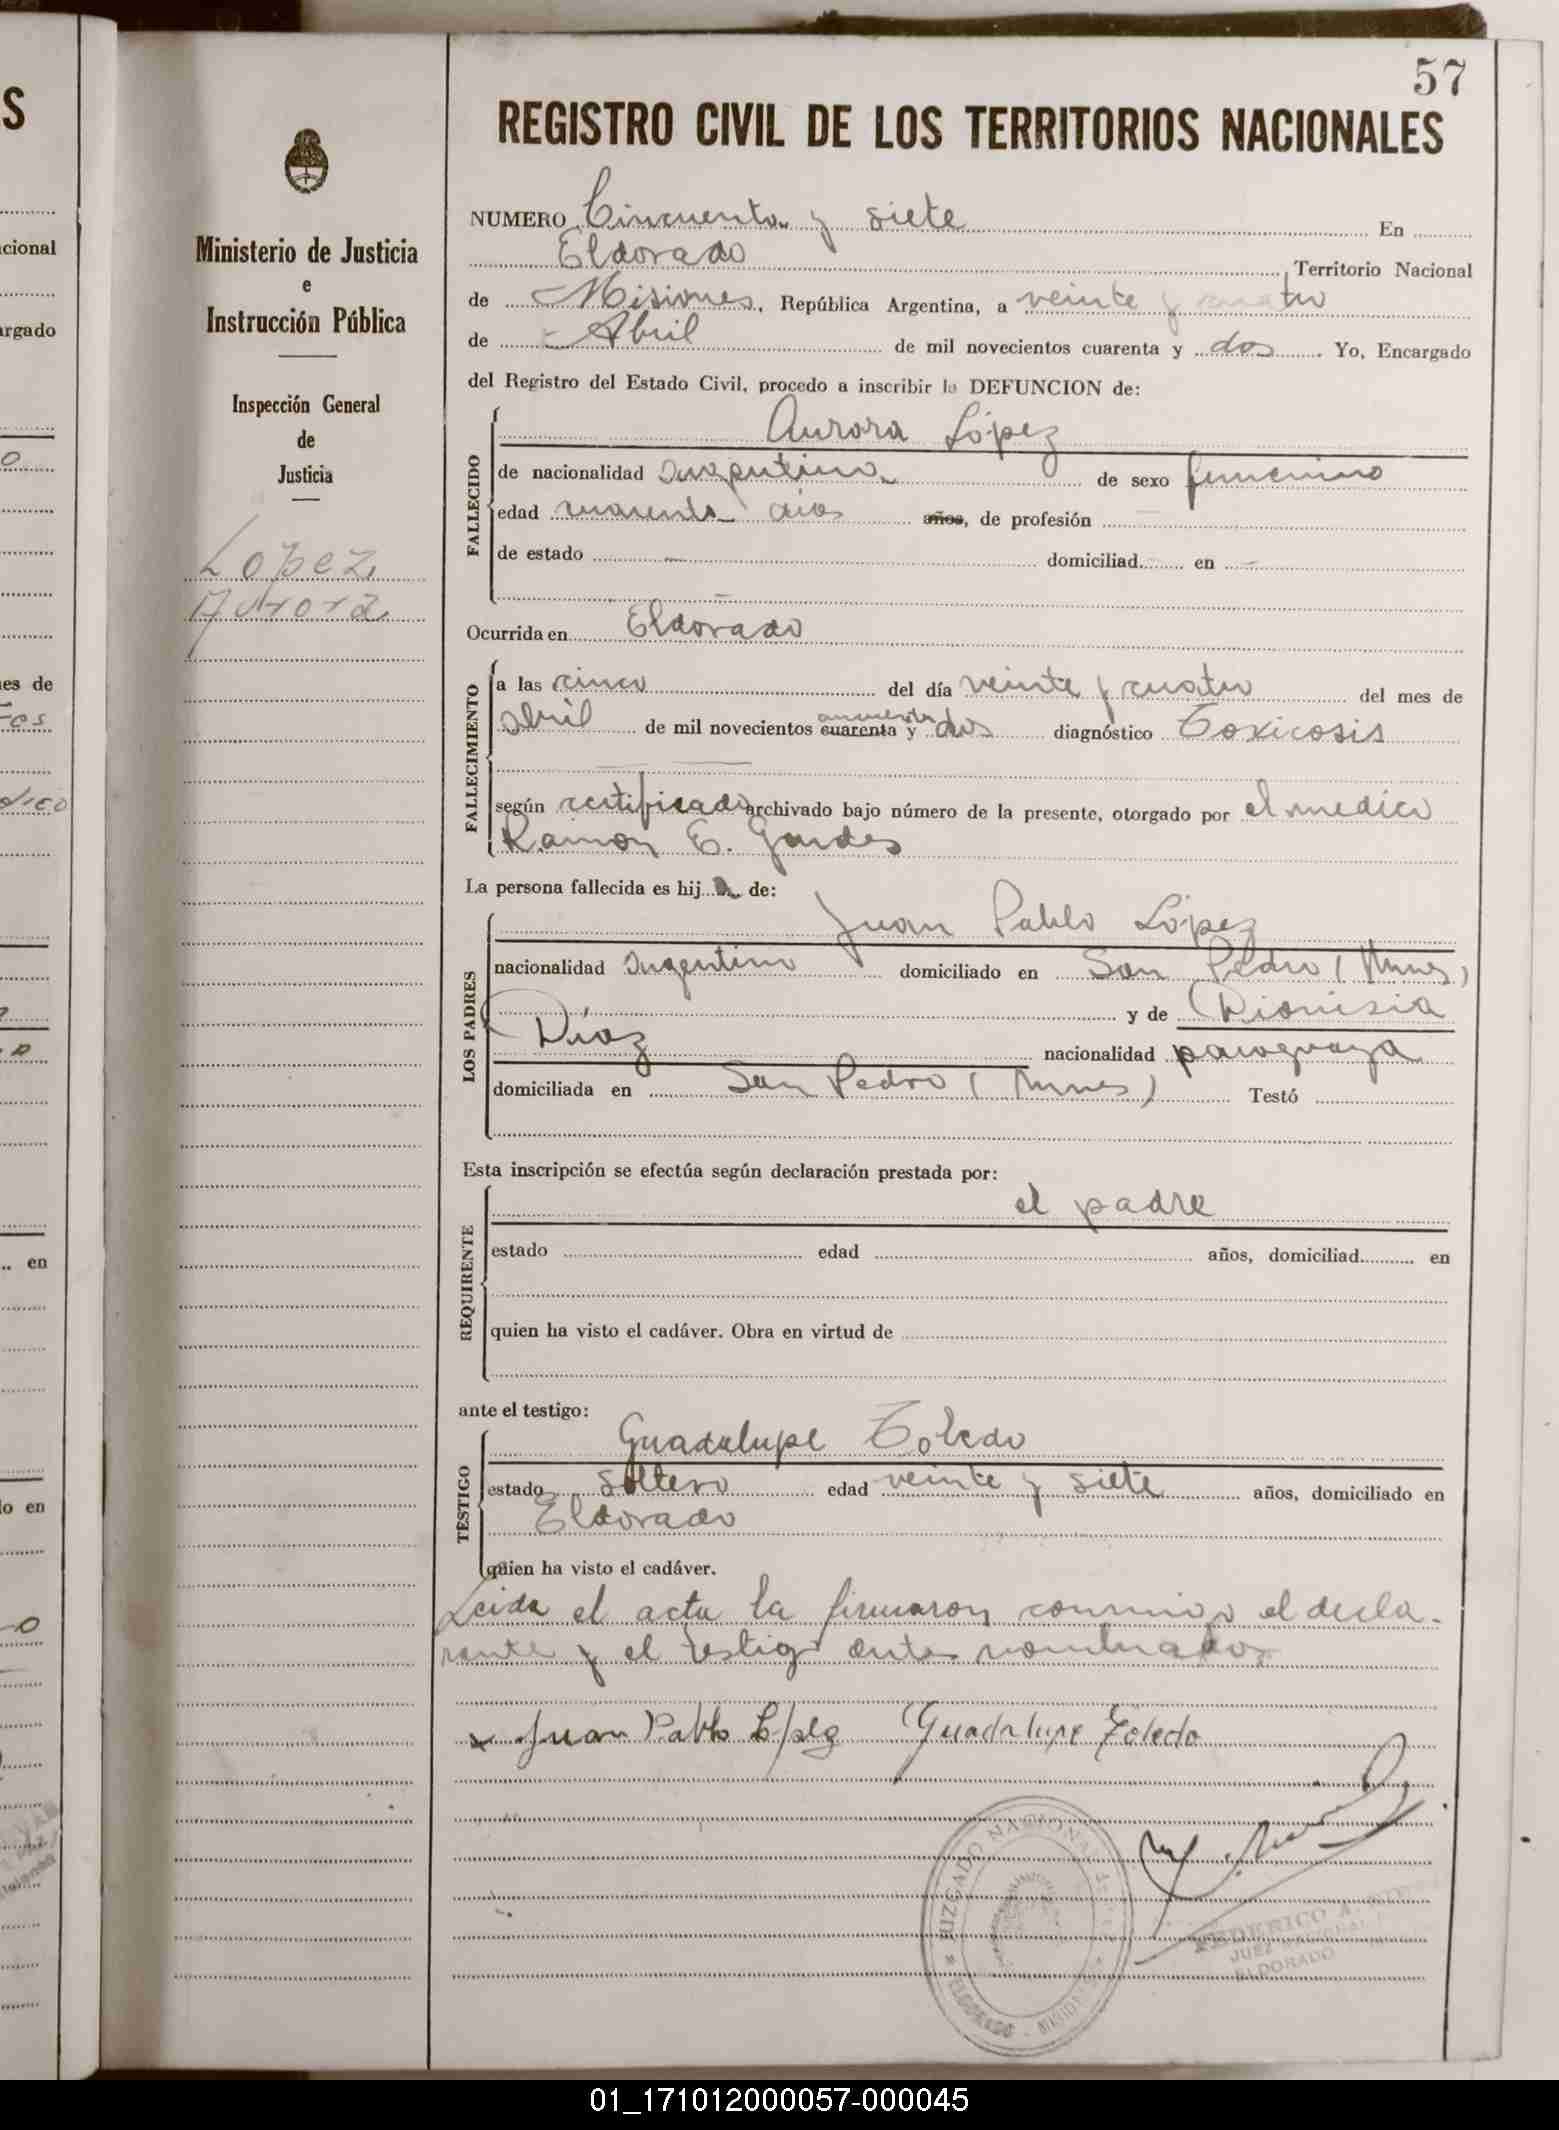 57
REGISTRO CIVIL DE LOS TERRITORIOS NACIONALES
Ministerio de Justicia
e
Instrucción Pública
Inspección General
de
Justicia
Lopez
Aurora
NUMERO Cincuenta y siete En
Eldorado, Territorio Nacional
de Misiones, República Argentina, a veinte y cuatro
de Abril de mil novecientos cuarenta y dos Yo, Encargado
del Registro del Estado Civil, procedo a inscribir la DEFUNCION de:
FALLECIDO
Aurora López
de nacionalidad argentina de sexo femenino
edad cuarenta dias años, de profesión
de estado domiciliad en
Ocurrida en Eldorado
FALLECIMIENTO
a las cinco del día veinte y cuatro del mes de
abril de mil novecientos cuarenta y dos diagnóstico Toxicosis
según certificado archivado bajo número de la presente, otorgado por el medico
Ramon E. Gardes
La persona fallecida es hija de:
LOS PADRES
Juan Pablo López
nacionalidad argentino domiciliado en San Pedro (Mnes)
y de Dionisia
Díaz nacionalidad paraguaya
domiciliada en San Pedro (Mnes) Testó
Esta inscripción se efectúa según declaración prestada por:
REQUIRENTE
el padre
estado edad años, domiciliad en
quien ha visto el cadáver. Obra en virtud de
ante el testigo:
TESTIGO
Guadalupe Toledo
estado soltero edad veinte y siete años, domiciliado en
Eldorado
quien ha visto el cadáver.
Leida el acta la firmaron conmigo el decla-
rante y el testigo antes nombrados
Juan Pablo López Guadalupe Toledo
JUZGADO NACIONAL de PAZ
ELDORADO - MISIONES
FEDERICO A.
JUEZ NACIONAL
ELDORADO
cional
argado
es de
en
o en
01_171012000057-000045